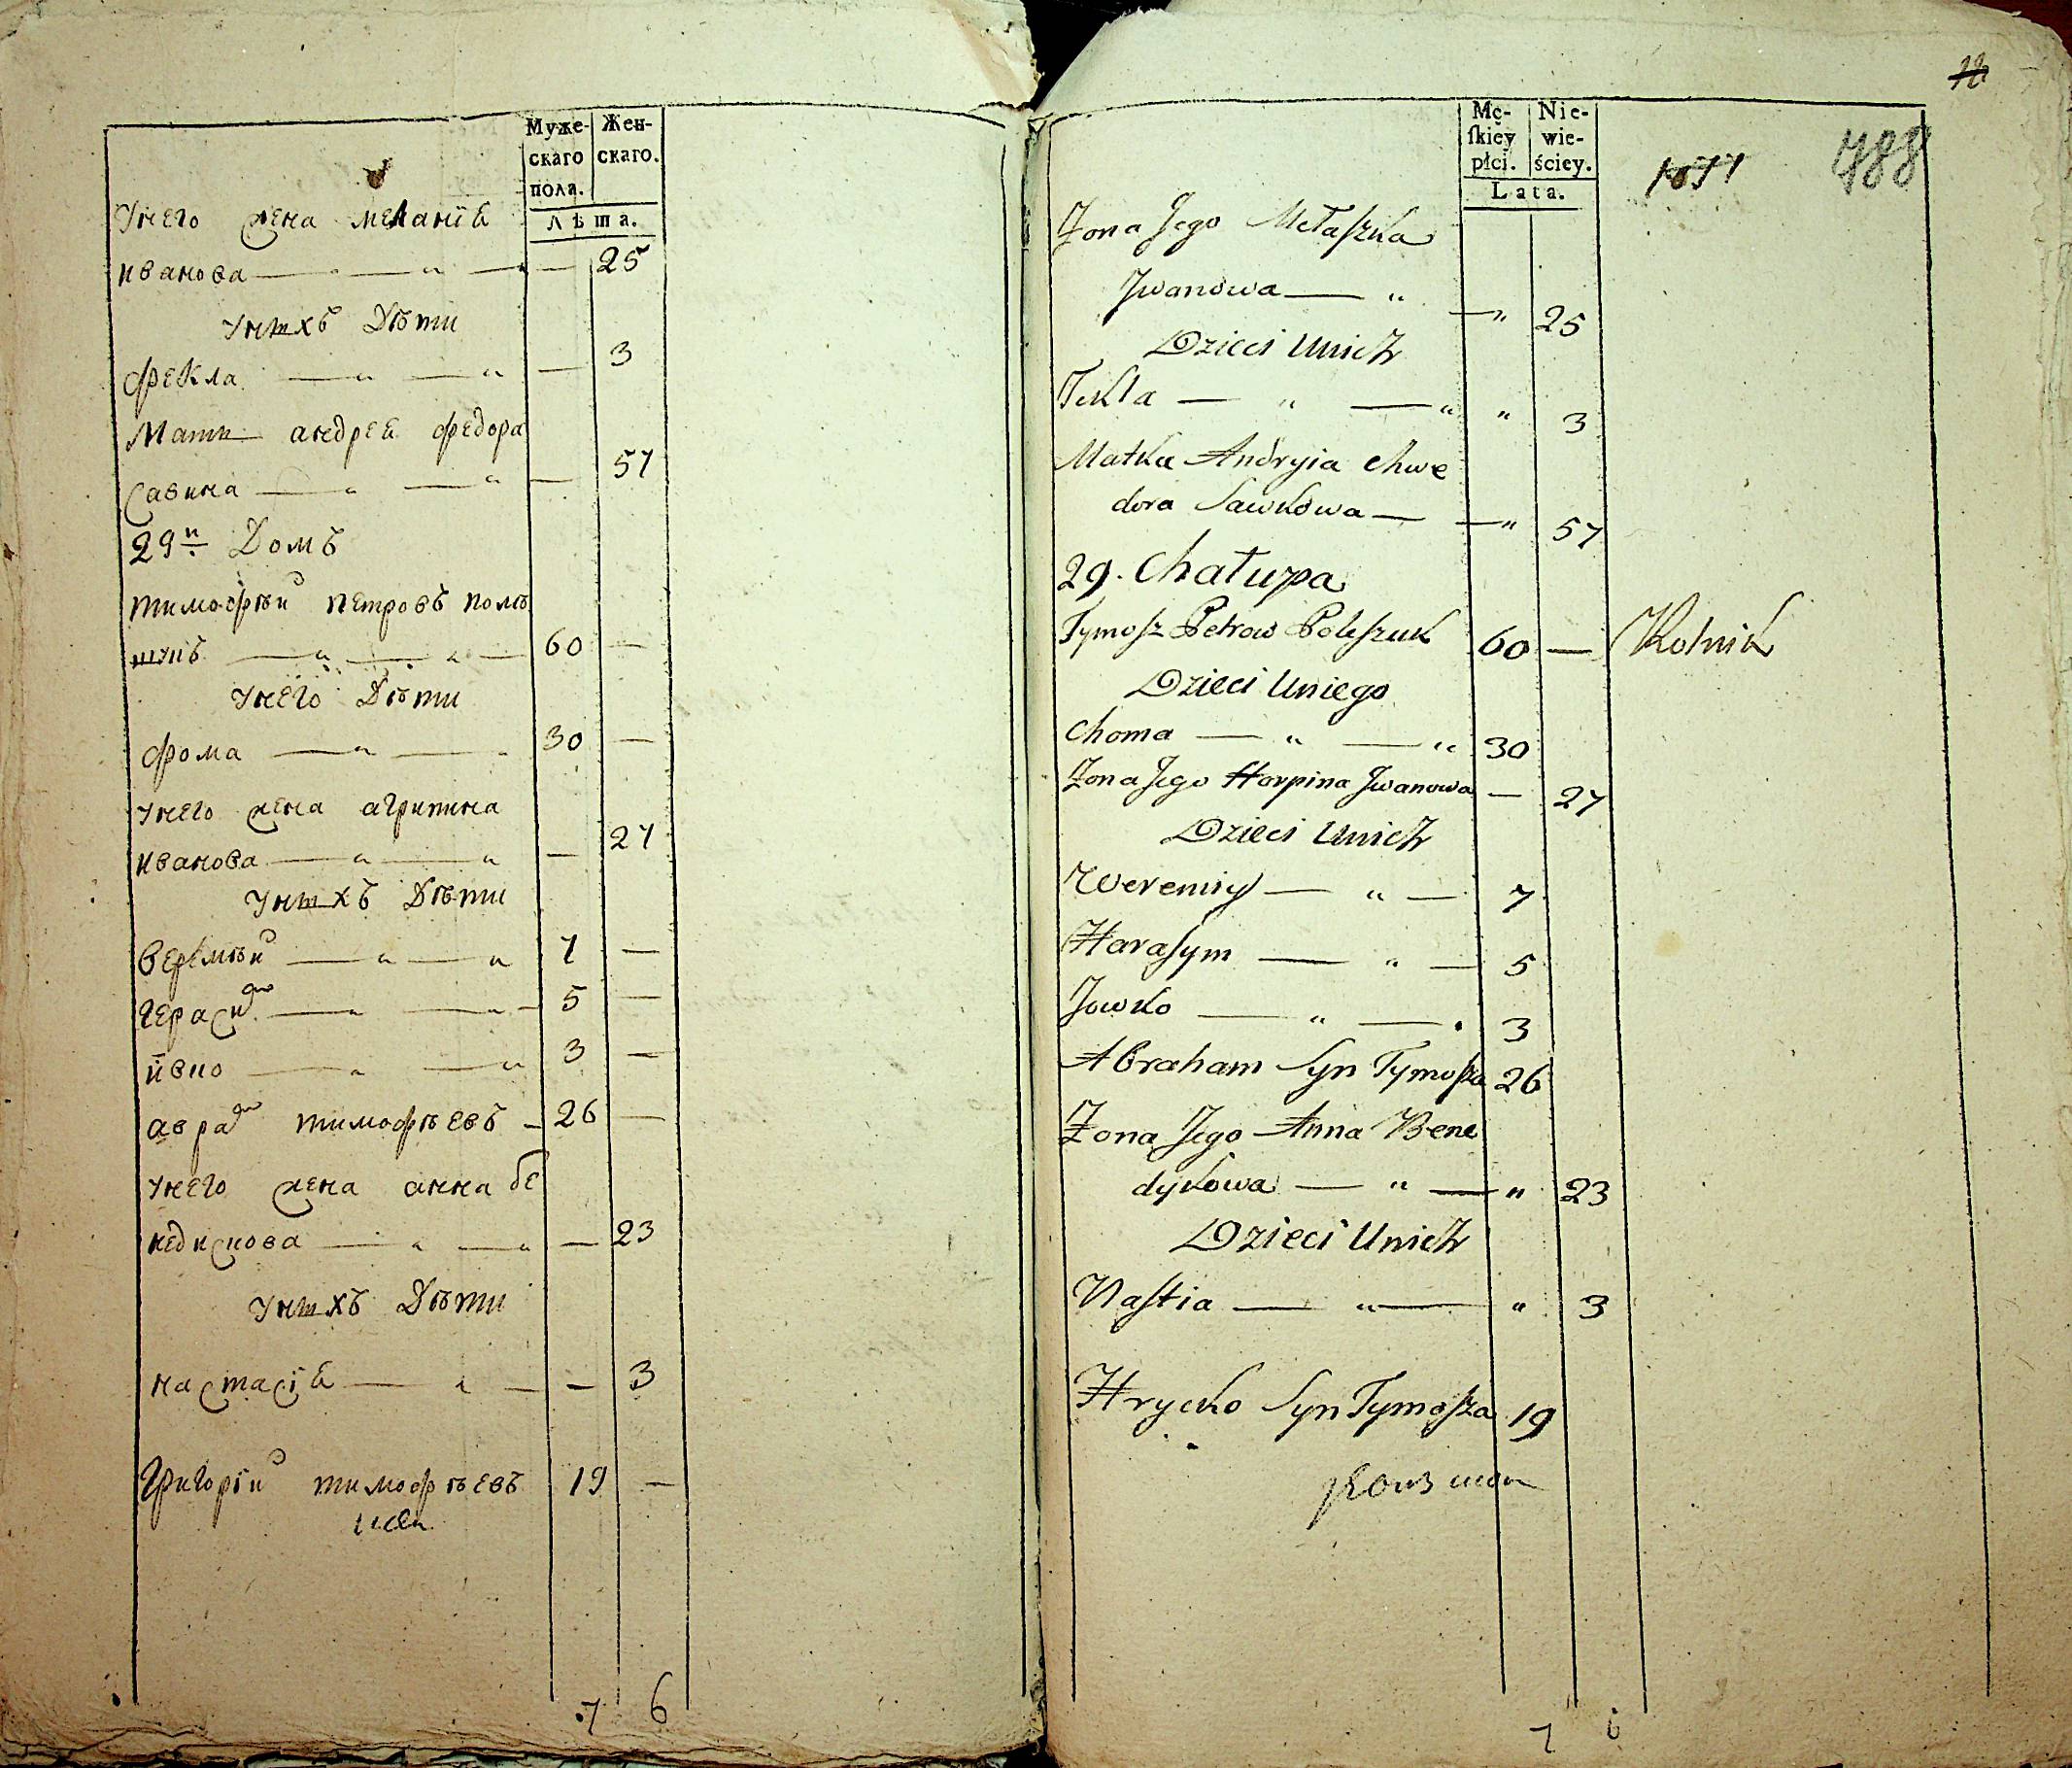 Муже-
скаго
пола.
Жен-
скаго.
Лѣта.
Унего жена меланїя
иванова — " — " — — 25
Унихъ Дѣти
фекла — " — " — 3
Мать андрея федора
савина — " — " — 57
29й Домъ
тимофѣй петровъ полѣ
шукъ — " — " — 60 —
Унего Дѣти
фома — " — 30 —
Унего жена агрипина
иванова — " — " — 27
Унихъ Дѣти
Веремѣй — " — " 7 —
герасим — " — " — 5 —
ївко — " — " 3 —
аврам тимофѣевъ — 26 —
Унего жена анна бе
недискова — " — " — 23
Унихъ Дѣти
настасїя — " — — 3
Григорїй тимофѣевъ 19 —
7 6
12
Mę-
skiey
płci.
Nie-
wie-
ściey.
Lata.
788
Żona Jego Metaszka
Jwanowa — " — " 25
Dzieci Unich
Tekla — " — " " 3
Matka Andryia Chwe
dora Sawkowa — — " 57
29. Chałupa
Tymosz Petrow Poleszuk 60 — Rolnik
Dzieci Uniego
Choma — " — " 30
Żona Jego Horpina Jwanowa — 27
Dzieci Unich
Weremiy — " — 7
Harasym — " — 5
Jowko — " — . 3
Abraham Syn Tymosza 26
Żona Jego Anna Bene
dykowa — " — " 23
Dzieci Unich
Nastia — " — " 3
Hrycko Syn Tymosza 19
7 6